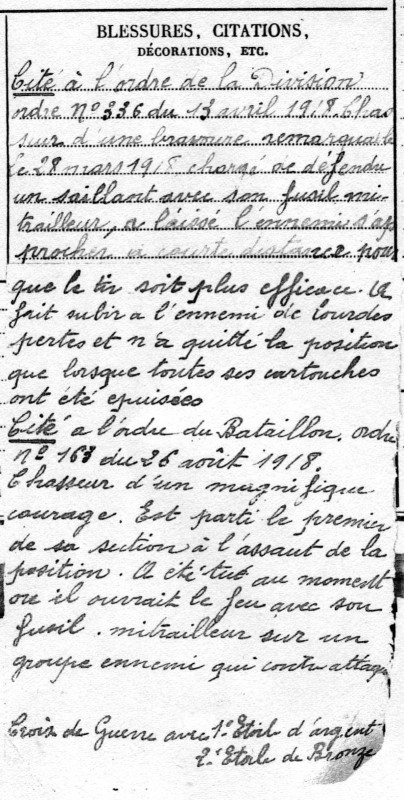 BLESSURES, CITATIONS,
DÉCORATIONS, ETC.
Cité à l'ordre de la Division
ordre N° 336 du 13 avril 1918. Chas
seur d'une bravoure remarquable
Le 28 mars 1918 chargé de défendre
un saillant avec son fusil mi-
trailleur, a laissé l'ennemi s'ap
procher à courte distance pour
que le tir soit plus efficace. A
fait subir a l'ennemi de lourdes
pertes et n'a quitté la position
que lorsque toutes ses cartouches
ont été epuisées
Cité a l'ordre du Bataillon. ordre
n° 163 du 26 août 1918.
Chasseur d'un magnifique
courage. Est parti le premier
de sa section à l'assaut de la
position. A été tué au moment
ou il ouvrait le feu avec son
fusil. mitrailleur sur un
groupe ennemi qui contr'attaqu
Croix de Guerre avec 1° Etoile d'argent
2° Etoile de Bronze